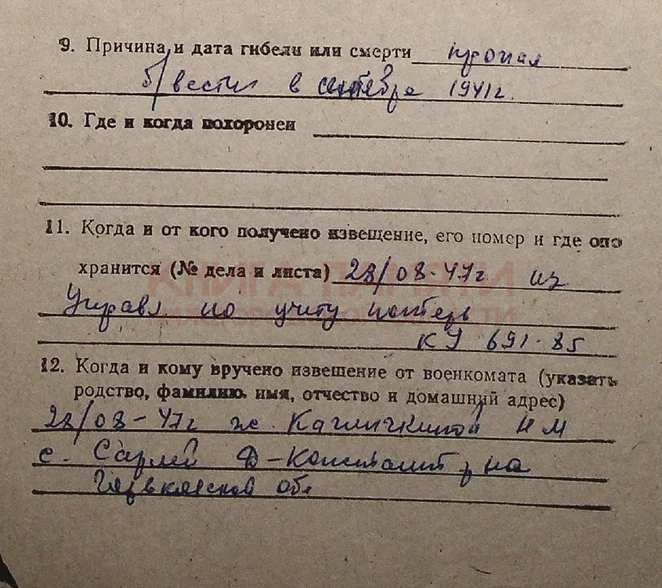 9. Причина и дата гибели или смерти пропал
б/вести в сентябре 1941г.
10. Где и когда похоронен
11. Когда и от кого получено извещение, его номер и где оно
хранится (№ дела и листа) 28/08-47г из
Управл по учету потерь
КУ 691-85
12. Когда и кому вручено извещение от военкомата (указать
родство, фамилию, имя, отчество и домашний адрес)
28/08-47г ж. Н М
с. Сарлей Д-Константр на
Горьковской обл
КНИГА ПАМЯТИ